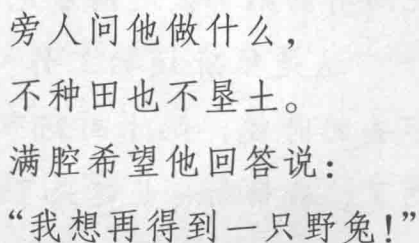 旁人问他做什么，
不种田也不垦土。
满腔希望他回答说：
“我想再得到一只野兔！”